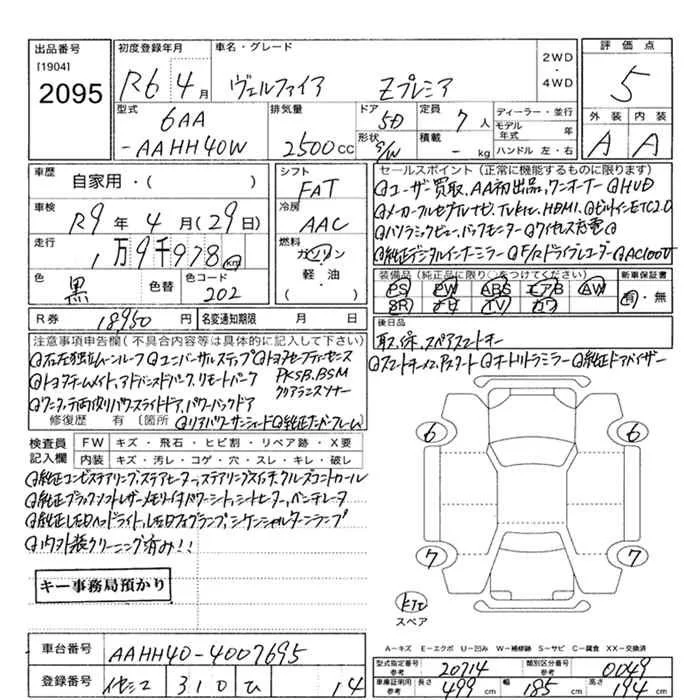 出品番号
[1904]
2095
初度登録年月
R6 4月
車名・グレード
ヴェルファイア Zプレミア
2WD
・
4WD
評価点
5
外装 内装
A A
型式
6AA
-AAHH40W
排気量
2500CC
ドア
5D
形状
S/W
定員
7人
積載
-kg
ディーラー・並行
モデル年式 年
ハンドル 左・右
車歴 自家用・( )
車検
R9年4月(29日)
走行
1万9千978km
色
黒
色替
色コード
202
シフト
FAT
冷房
AAC
燃料
ガソリン
・
軽・油
( )
セールスポイント(正常に機能するものに限ります)
@ユーザー買取、AA初出品、ワンオーナー @HUD
@メーカーフルセグTVナビ、TVキャン、HDMI、@ビルトインETC2.0
@パノラミックビュー、バックモニター @ワイヤレス充電@
@純正デジタルインナーミラー @F/Rドライブレコーダー @AC100V
装備品(純正品に限り○をつけてください)
PS PW ABS エアB AW
SR ナビ TV カワ
新車保証書
有・無
R券 18950円
名変通知期限 月 日
後日品
取、保、スペアスマートキー
注意事項申告欄(不具合内容等は具体的に記入して下さい)
@右左独立ムーンルーフ @ユニバーサルステップ @トヨタセーフティセンス
@トヨタチームメイト、アドバンスドパーク、リモートパーク
PKSB、BSM
クリアランスソナー
@ワンタッチ両側パワースライドドア、パワーバックドア
修復歴 有 〔箇所 @リアパワーサンシェード @純正ナンバーフレーム〕
@スマートキーx2、Pスタート @オートリトラミラー @純正ドアバイザー
検査員記入欄
FW キズ・飛石・ヒビ割・リペア跡・X要
内装 キズ・汚レ・コゲ・穴・スレ・キレ・破レ
@純正コンビステアリング、ステアヒーター、ステアリングスイッチ、クルーズコントロール
@純正ブラックソフトレザー、メモリー付きパワーシート、シートヒーター、ベンチレータ
@純正LEDヘッドライト、LEDフォグランプ、シーケンシャルターンランプ
@内外装クリーニング済み!!
キー事務局預かり
6 6
7 7
スペア
A−キズ E−エクボ U−凹み W−補修跡 S−サビ C−腐食 XX−交換済
車台番号 AAHH40-4007695
登録番号 310 ひ 14
型式指定番号
参考
20714
類別区分番号
参考
0149
車庫証明用
参考
長さ 499cm
幅 185cm
高さ 194cm